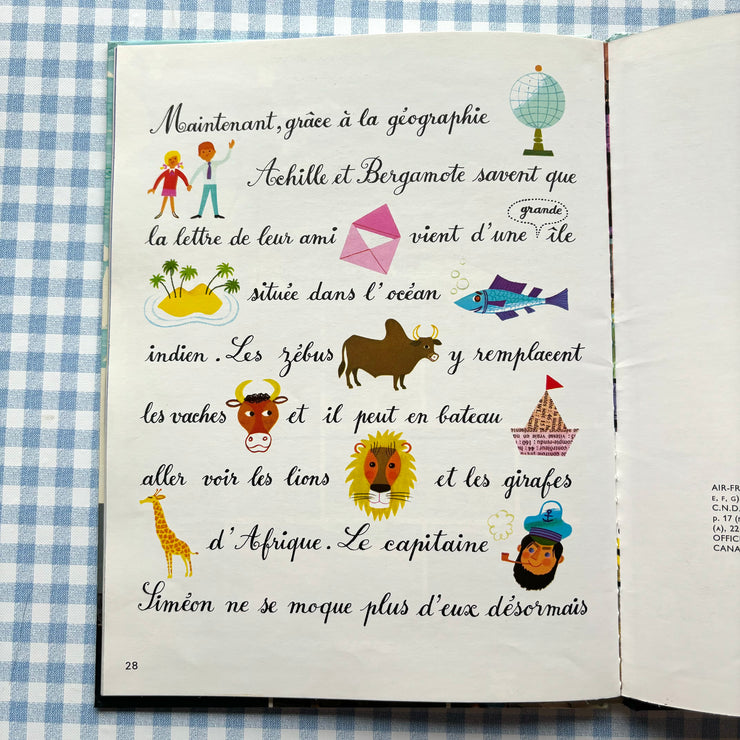 Maintenant, grâce à la géographie
Achille et Bergamote savent que
grande
la lettre de leur ami vient d'une île
située dans l'océan
indien. Les zébus y remplacent
les vaches et il peut en bateau
aller voir les lions et les girafes
d'Afrique. Le capitaine
Siméon ne se moque plus d'eux désormais
28
AIR-FR
E, F, G)
C.N.D.
p. 17 (
(A), 22
OFFICI
CANA